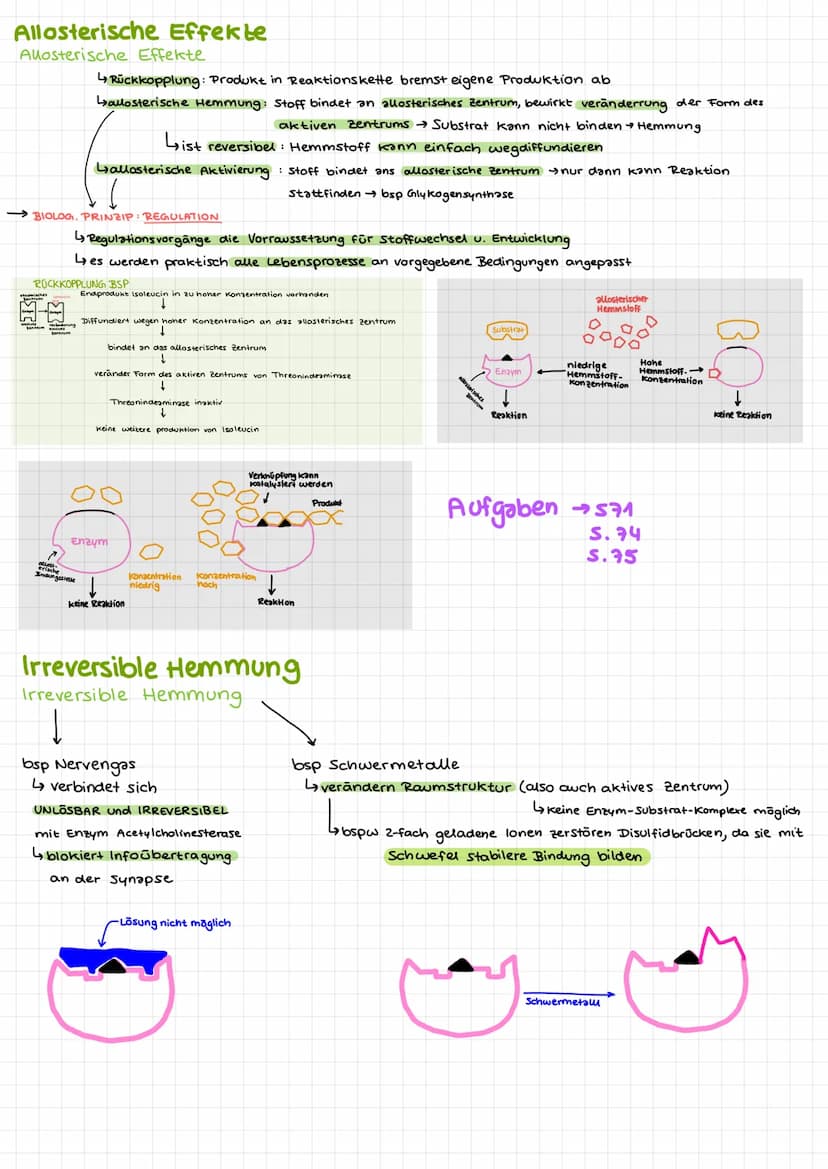 Allosterische Effekte
Allosterische Effekte
↳ Rückkopplung: Produkt in Reaktionskette bremst eigene Produktion ab
↳ allosterische Hemmung: Stoff bindet an allosterisches Zentrum, bewirkt veränderrung der Form des
aktiven Zentrums → Substrat kann nicht binden → Hemmung
↳ ist reversibel: Hemmstoff kann einfach wegdiffundieren
↳ allosterische Aktivierung: Stoff bindet ans allosterische Zentrum → nur dann kann Reaktion
stattfinden → bsp Glykogensynthase
→ BIOLOG. PRINZIP: REGULATION
↳ Regulationsvorgänge die Vorraussetzung für Stoffwechsel u. Entwicklung
↳ es werden praktisch alle Lebensprozesse an vorgegebene Bedingungen angepasst
RÜCKKOPPLUNG BSP
Endprodukt Isoleucin in zu hoher Konzentration vorhanden
Diffundiert wegen hoher Konzentration an das allosterisches Zentrum
bindet an das allosterisches Zentrum
veränder Form des aktiven Zentrums von Threonindesminase
Threonindesminase inaktiv
keine weitere produktion von Isoleucin
allosterischer
Hemmstoff
Substrat
Enzym
allosterisches
Zentrum
niedrige
Hemmstoff-
Konzentration
Hohe
Hemmstoff-
Konzentration
Reaktion
keine Reaktion
Verknüpfung kann
katalysiert werden
Produkt
Enzym
Konzentration
niedrig
Konzentration
hoch
keine Reaktion
Reaktion
Aufgaben → S71
S. 74
S. 75
Irreversible Hemmung
Irreversible Hemmung
bsp Nervengas
↳ verbindet sich
UNLÖSBAR und IRREVERSIBEL
mit Enzym Acetylcholinesterase
↳ blokiert Infoübertragung
an der Synapse
bsp Schwermetalle
↳ verändern Raumstruktur (also auch aktives Zentrum)
↳ keine Enzym-Substrat-Komplexe möglich
↳ bspw 2-fach geladene Ionen zerstören Disulfidbrücken, da sie mit
Schwefel stabilere Bindung bilden
Lösung nicht möglich
Schwermetall